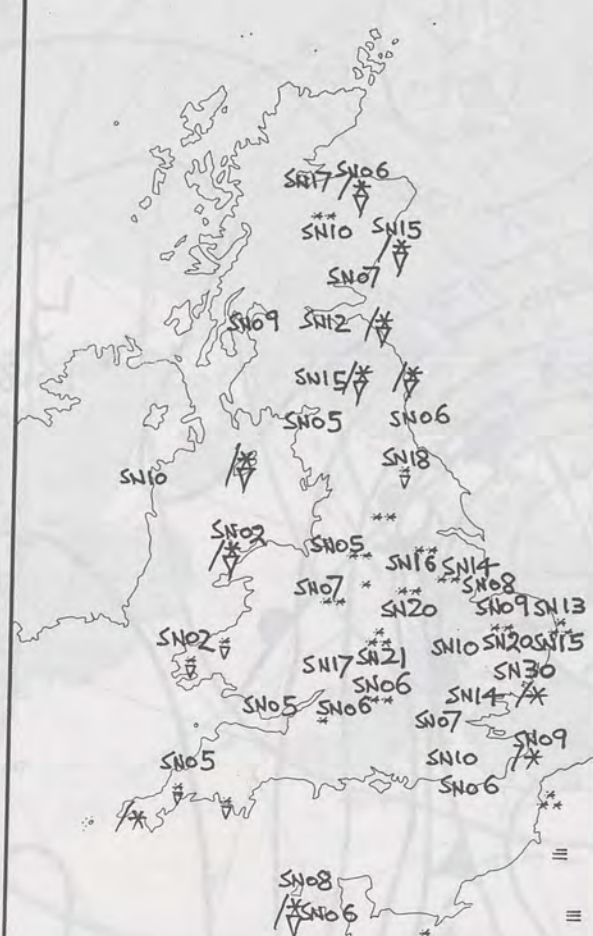 SN17 SN06
SN10 SN15
SN07
SN09 SN12
SN15
SN05 SN06
SN10 SN18
SN02 SN05
SN16 SN14
SN07 SN08
SN20 SN09 SN13
SN02 SN10 SN20 SN15
SN17 SN21
SN06 SN30
SN05 SN06 SN14
SN07
SN05 SN10 SN09
SN06
SN08
SN06